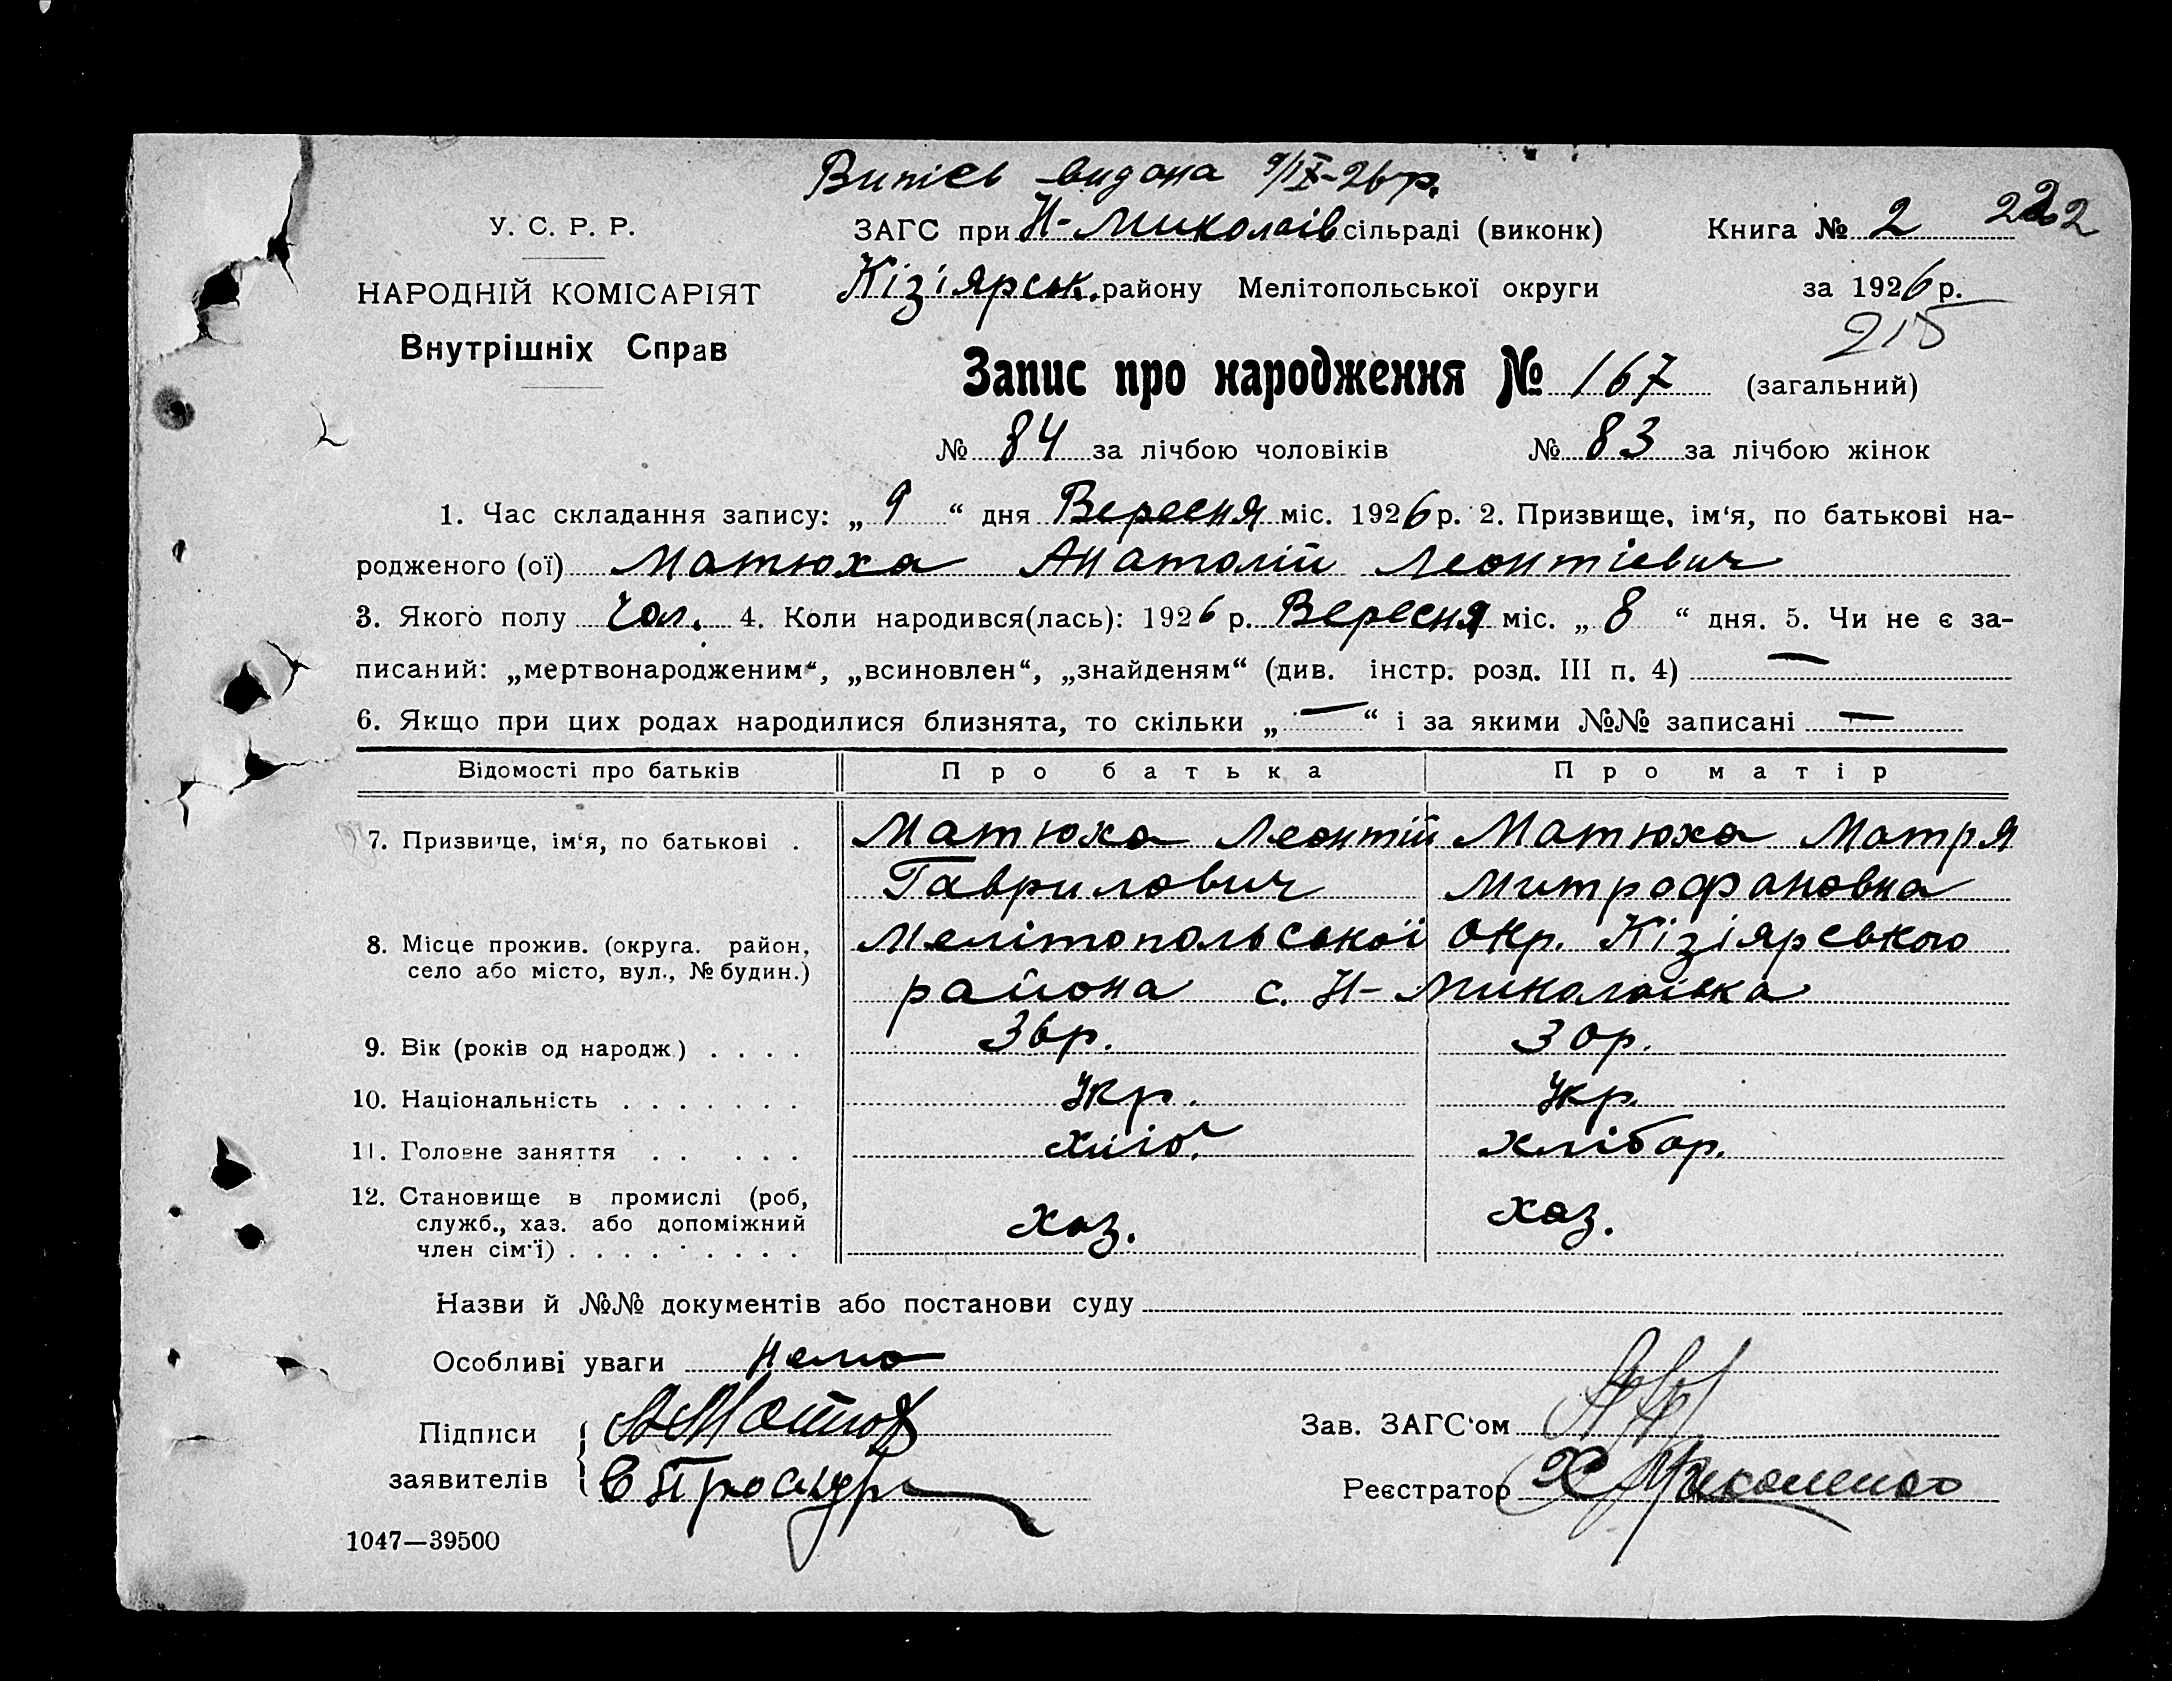 Випісь видана 9/IX-26р.
У. С. Р. Р.
НАРОДНІЙ КОМІСАРІЯТ
Внутрішніх Справ
ЗАГС при Н-Миколаів сільраді (виконк)
Книга № 2 222
Кізіярськ. району Мелітопольської округи
за 1926 р.
215
Запис про народження № 167 (загальний)
№ 84 за лічбою чоловіків № 83 за лічбою жінок
1. Час складання запису: „ 9 “ дня Вересня міс. 1926 р. 2. Призвище, ім‘я, по батькові на-
родженого (ої) Матюха Анатолій Леонтіевич
3. Якого полу Чол. 4. Коли народився(лась): 1926 р. Вересня міс. „ 8 “ дня. 5. Чи не є за-
писаний: „мертвонародженим“, „всиновлен“, „знайденям“ (див. інстр. розд. III п. 4) —
6. Якщо при цих родах народилися близнята, то скільки „ — “ і за якими №№ записані —
Відомості про батьків Про батька Про матір
7. Призвище, ім‘я, по батькові . Матюха Леонтій Матюха Матря
Гаврилович Митрофановна
8. Місце прожив. (округа. район, Мелітопольської окр. Кізіярського
село або місто, вул., № будин.) района с. Н-Миколаівка
9. Вік (років од народж.) . . . . 36р. 30р.
10. Національність . . . . . . . Укр. Укр.
11. Головне заняття . . . . . хліб. хлібор.
12. Становище в промислі (роб,
служб., хаз. або допоміжний хаз. хаз.
член сім‘ї) . . . . . . . . .
Назви й №№ документів або постанови суду
Особливі уваги Нема
Підписи
заявителів
Зав. ЗАГС‘ом
Реєстратор
1047—39500